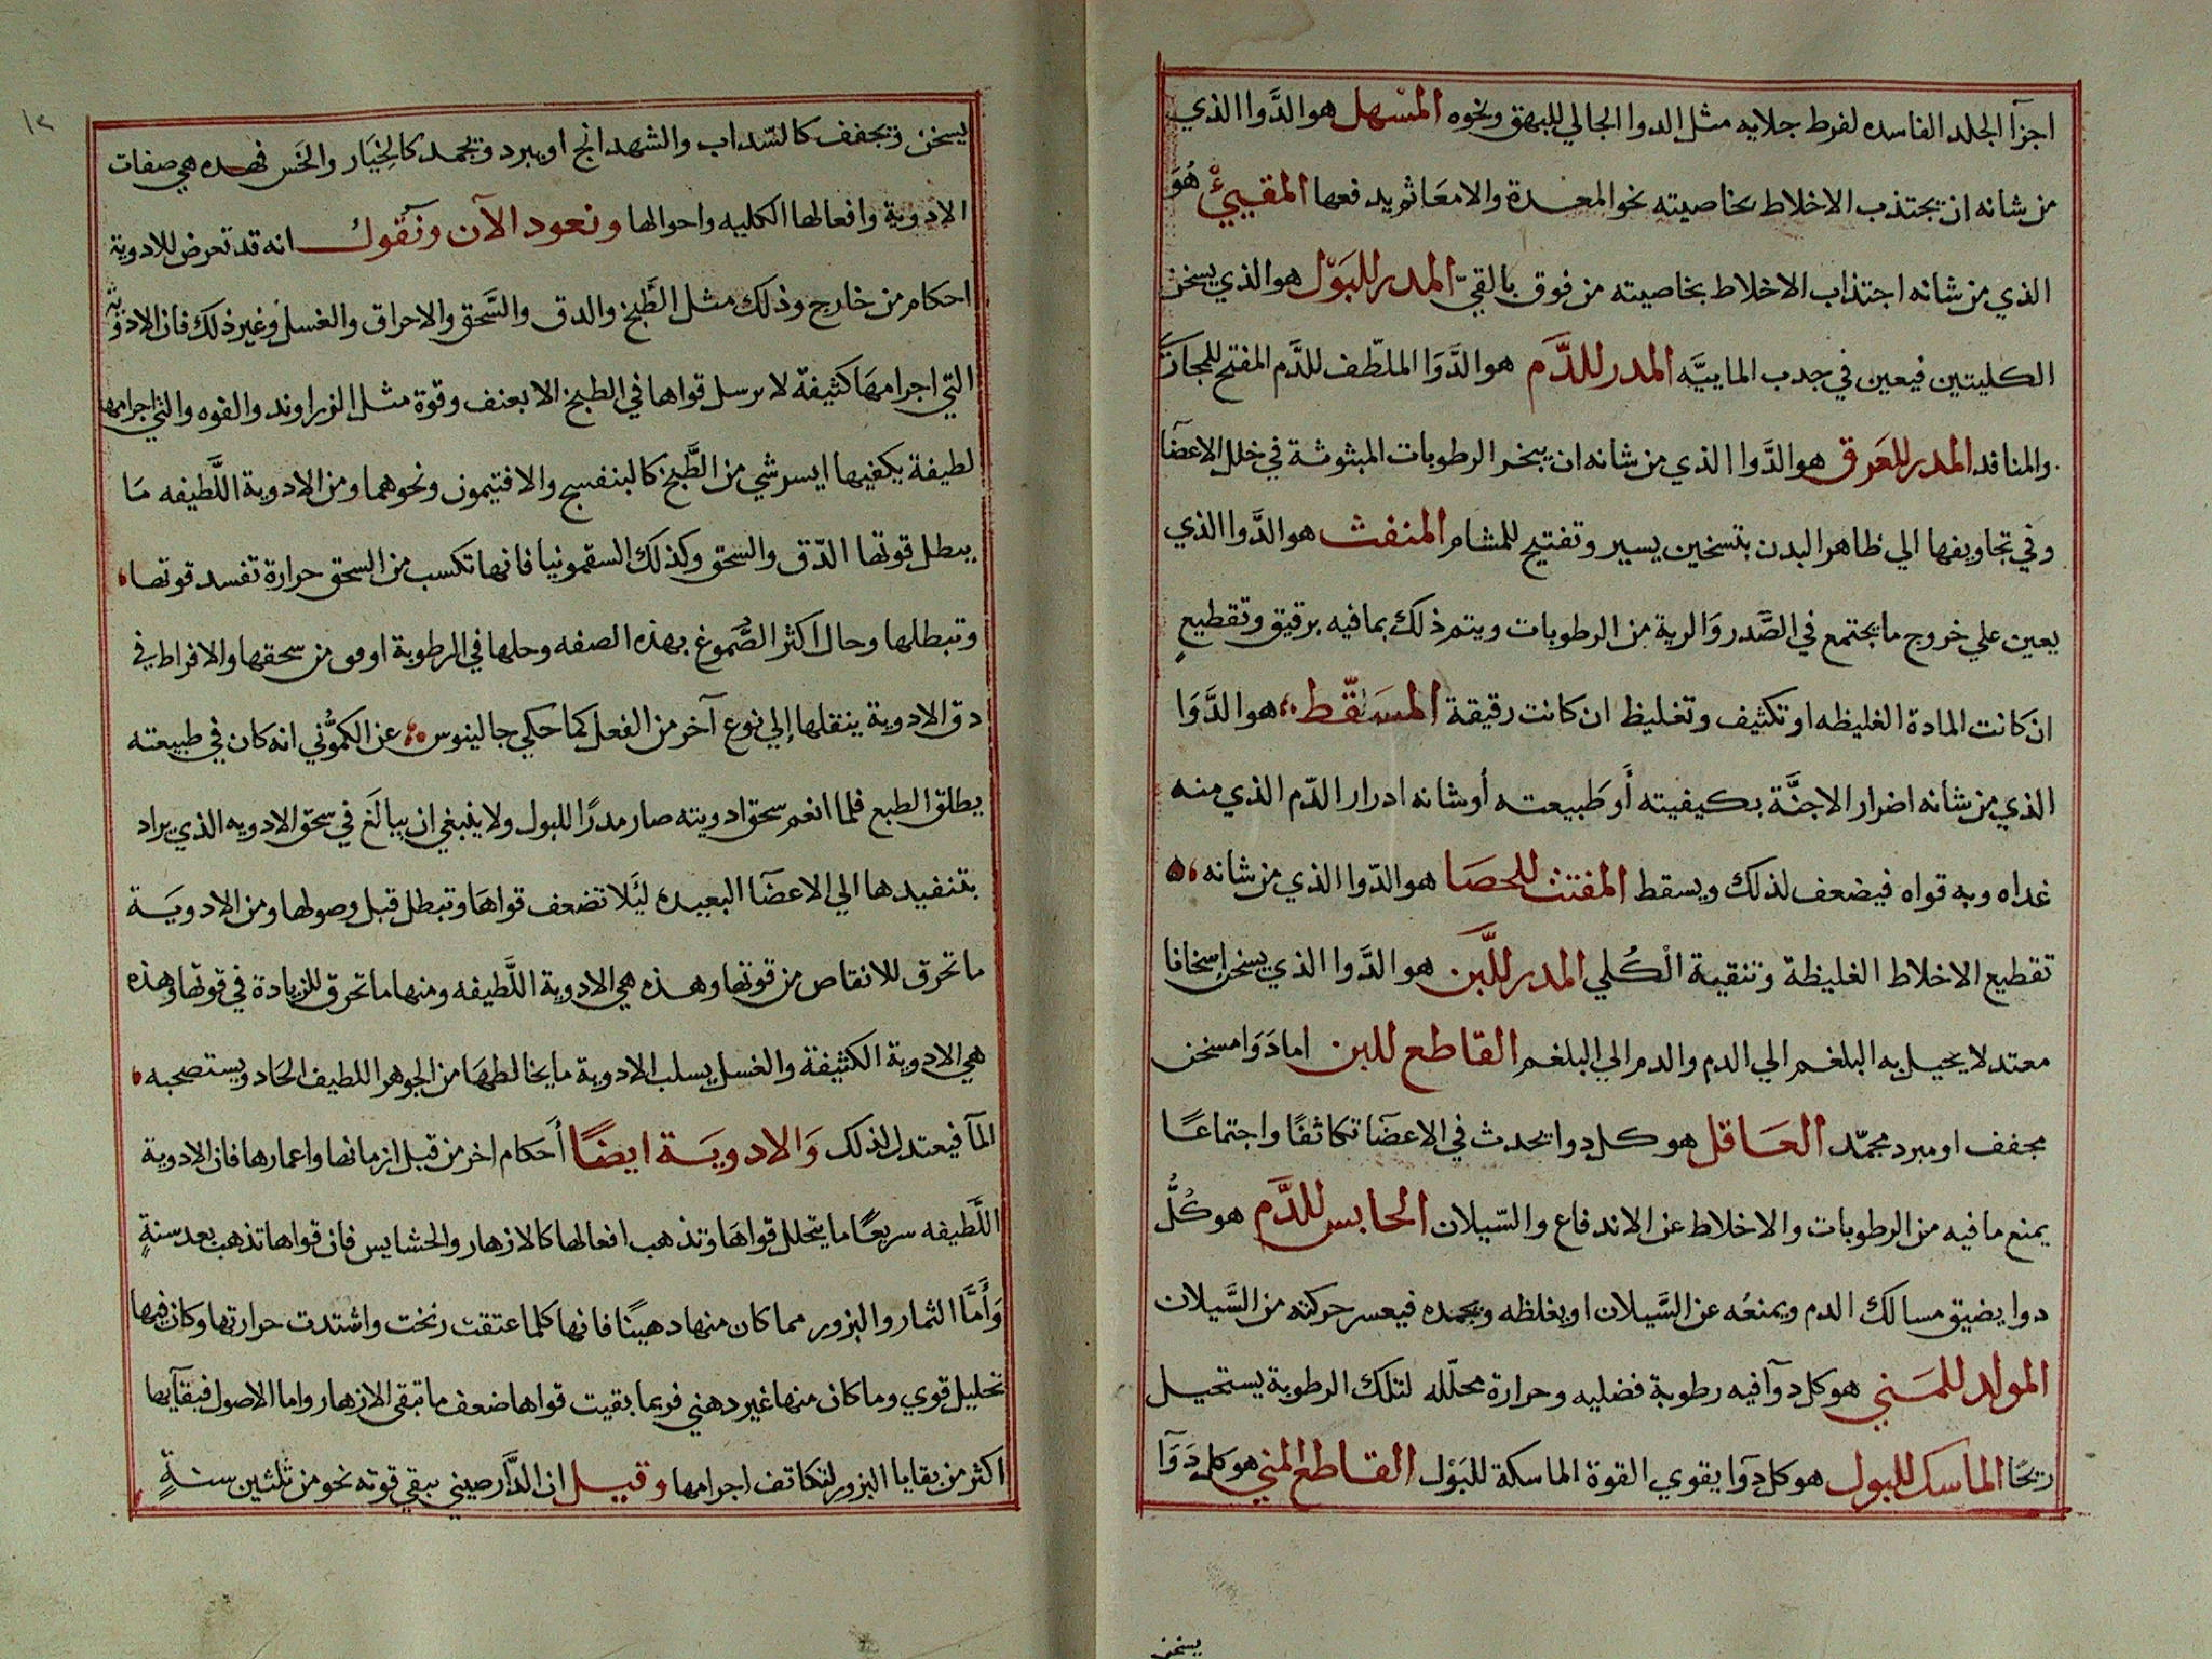 اجزآ الجلد الفاسده لفرط جلايه مثل الدوا الجالي للبهق ونحوه المسهل هو الدَّوا الذي
من شانه ان يجتذب الاخلاط بخاصيته نحو المعدة والامعَا ثم يدفعها المقييْ هُوَ
الذي من شانه اجتذاب الاخلاط بخاصيته من فوق بالقيّ المدر للبَوْل هو الذي يسخن
الكليتين فيعين في جدب الماييَّه المدر للدَّم هو الدَّوَا الملطّف للدَّم المفتح للمجاري
والمنافد المدر للعَرق هو الدَّوا الذي من شانه ان يبخر الرطوبات المبثوثة في خلل الاعضَآ
وفي تجاويفها الي ظاهر البدن بتسخين يسير وتفتيح للمشام المنفث هو الدَّوا الذي
يعين علي خروج ما يجتمع في الصَّدر وَالرية من الرطوبات ويتم ذلك بما فيه برقيق وتقطيعٍ
ان كانت المادة الغليظه او تكثيف وتغليظ ان كانت رقيقة المسَقّط هو الدَّوَا
الذي من شانه اضرار الاجنَّة بكيفيته أو طَبيعته أو شانه ادرار الدّم الذي منه
غداه وبه قواه فيضعف لذلك ويسقط المفتث للحصَا هو الدّوا الذي من شانه
تقطيع الاخلاط الغليظة وتنقية الْكُلي المدر للَّبن هو الدَّوا الذي يسخن إسخانا
معتدلا يحيل به البلغم الي الدم والدم الي البلغم القاطع للبن اما دَوَا مسخن
مجفف او مبرد مجمّد العَاقل هو كل دوا يحدث في الاعضَآ تكاثفًا واجتماعًا
يمنع ما فيه من الرطوبات والاخلاط عن الاندفاع والسّيلان الحابس للدَّم هو كُلُّ
دوا يضيق مسالك الدم ويمنعُه عن السَّيلان او يغلظه ويجمده فيعسر حركته من السَّيلان
المولد للمَني هو كل دوآ فيه رطوبة فضليه وحرارة محلّله لتلك الرطوبة يستحيل
ريحًا الماسك للبول هو كل دوآ يقوي القوة الماسكة للبَوْل القاطع المني هو كل دَوَآ
يسخن
١٢
يسخن ويجفف كالسّداب والشهدانج او يبرد ويجمد كالخِيَار والخَس فهده هي صفات
الادوية وافعالها الكليه واحوالها ونعود الآن ونَقول انه قد تعرض للادوية
احكام من خارج وذلك مثل الطَّبخ والدق والسَّحق والاحراق والغسل وغير ذلك فان الادوية
التي اجرامهَا كثيفة لا ترسل قواها في الطبخ الا بعنف وقوة مثل الزراوند والفوه والتي اجرامها
لطيفة يكفيها ايسر شي من الطَّبخ كالبنفسج والافتيمون ونحوهما ومن الادوية اللَّطيفه مَا
يبطل قوتها الدّق والسحق وكذلك السقمونيا فانها تكسب من السحق حرارة تفسد قوتها
وتبطلها وحال اكثر الصُّموغ بهذه الصفه وحلها في الرطوبة اوفق من سحقها والافراط في
دق الادوية ينقلها إلي نوع آخر من الفعل كما حكي جالينوس عن الكمُّوني انه كان في طبيعته
يطلق الطبع فلما انعم سحق ادويته صار مدرًا للبول ولا ينبغي ان يبالَغ في سحق الادويه الذي يراد
بتنفيدها الي الاعضَآ البعيده ليَلا تضعف قواهَا وتبطل قبل وصولها ومن الادويَة
ما تحرق للانقاص من قوتها وهذه هي الادوية اللَّطيفه ومنها ما تحرق للزيادة في قوتها وهذه
هي الادوية الكثيفة والغسل يسلب الادوية ما يخالطهَا من الجوهر اللطيف الحَاد ويستصحبه
المآ فيعتدل لذلك وَالادويَة ايضًا أَحكام اخر من قبل ازمانها واعمارها فان الادوية
اللَّطيفه سريعًا ما يتحلل قواهَا وتذهب افعالها كالازهار والحشايس فان قواها تذهب بعد سنةٍ
وَأَمَّا الثمار والبزور مما كان منها دهينًا فانها كلما عتقت زنخت واشتدت حرارتها وكان فيها
تحليل قوي وما كان منها غير دهني فربما بقيت قواها ضعف ما تبقي الازهار واما الاصول فبقآيها
اكثر من بقايا البزور لتكاتف اجرامها وقيل ان الدَّارصيني يبقي قوته نحو من ثلثين سنةٍ